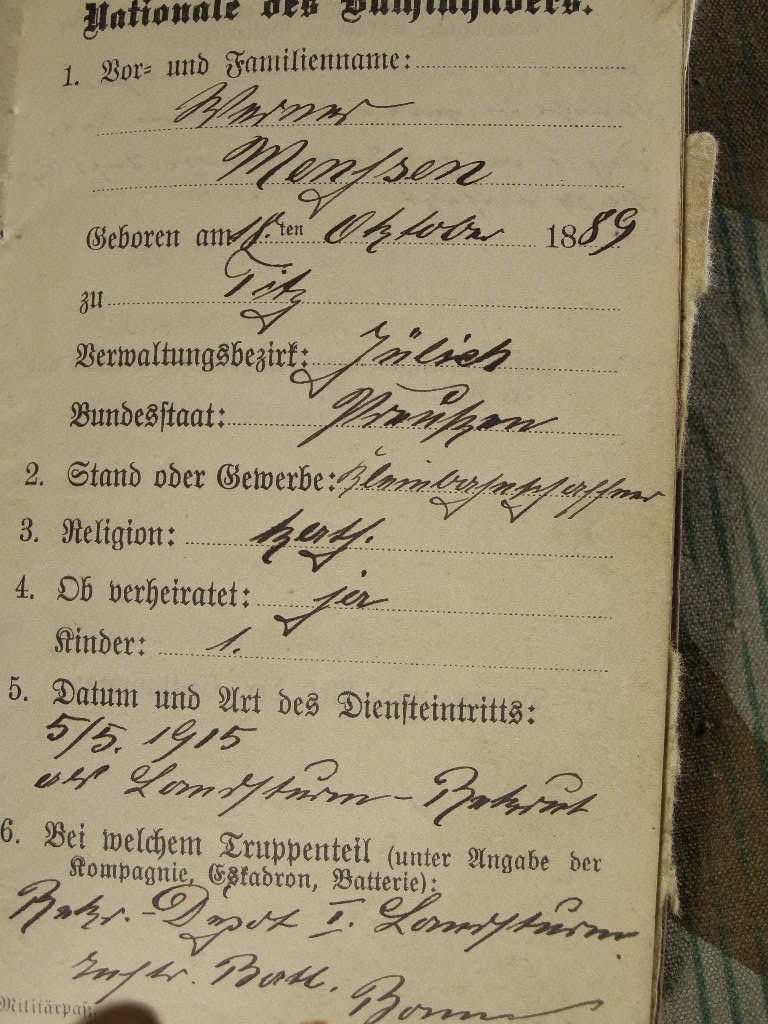 Nationale des Buchinhabers.
1. Vor- und Familienname:
Werner
Menssen
Geboren am 18.ten Oktober 1889
zu Titz
Verwaltungsbezirk: Jülich
Bundesstaat: Preußen
2. Stand oder Gewerbe: Kleinbahnschaffner
3. Religion: kath.
4. Ob verheiratet: ja
Kinder: 1.
5. Datum und Art des Diensteintritts:
5/5. 1915
als Landsturm-Rekrut
6. Bei welchem Truppenteil (unter Angabe der
Kompagnie, Eskadron, Batterie):
Rekr.-Depot I. Landsturm
Inftr. Batl. Bonn
Militärpaß